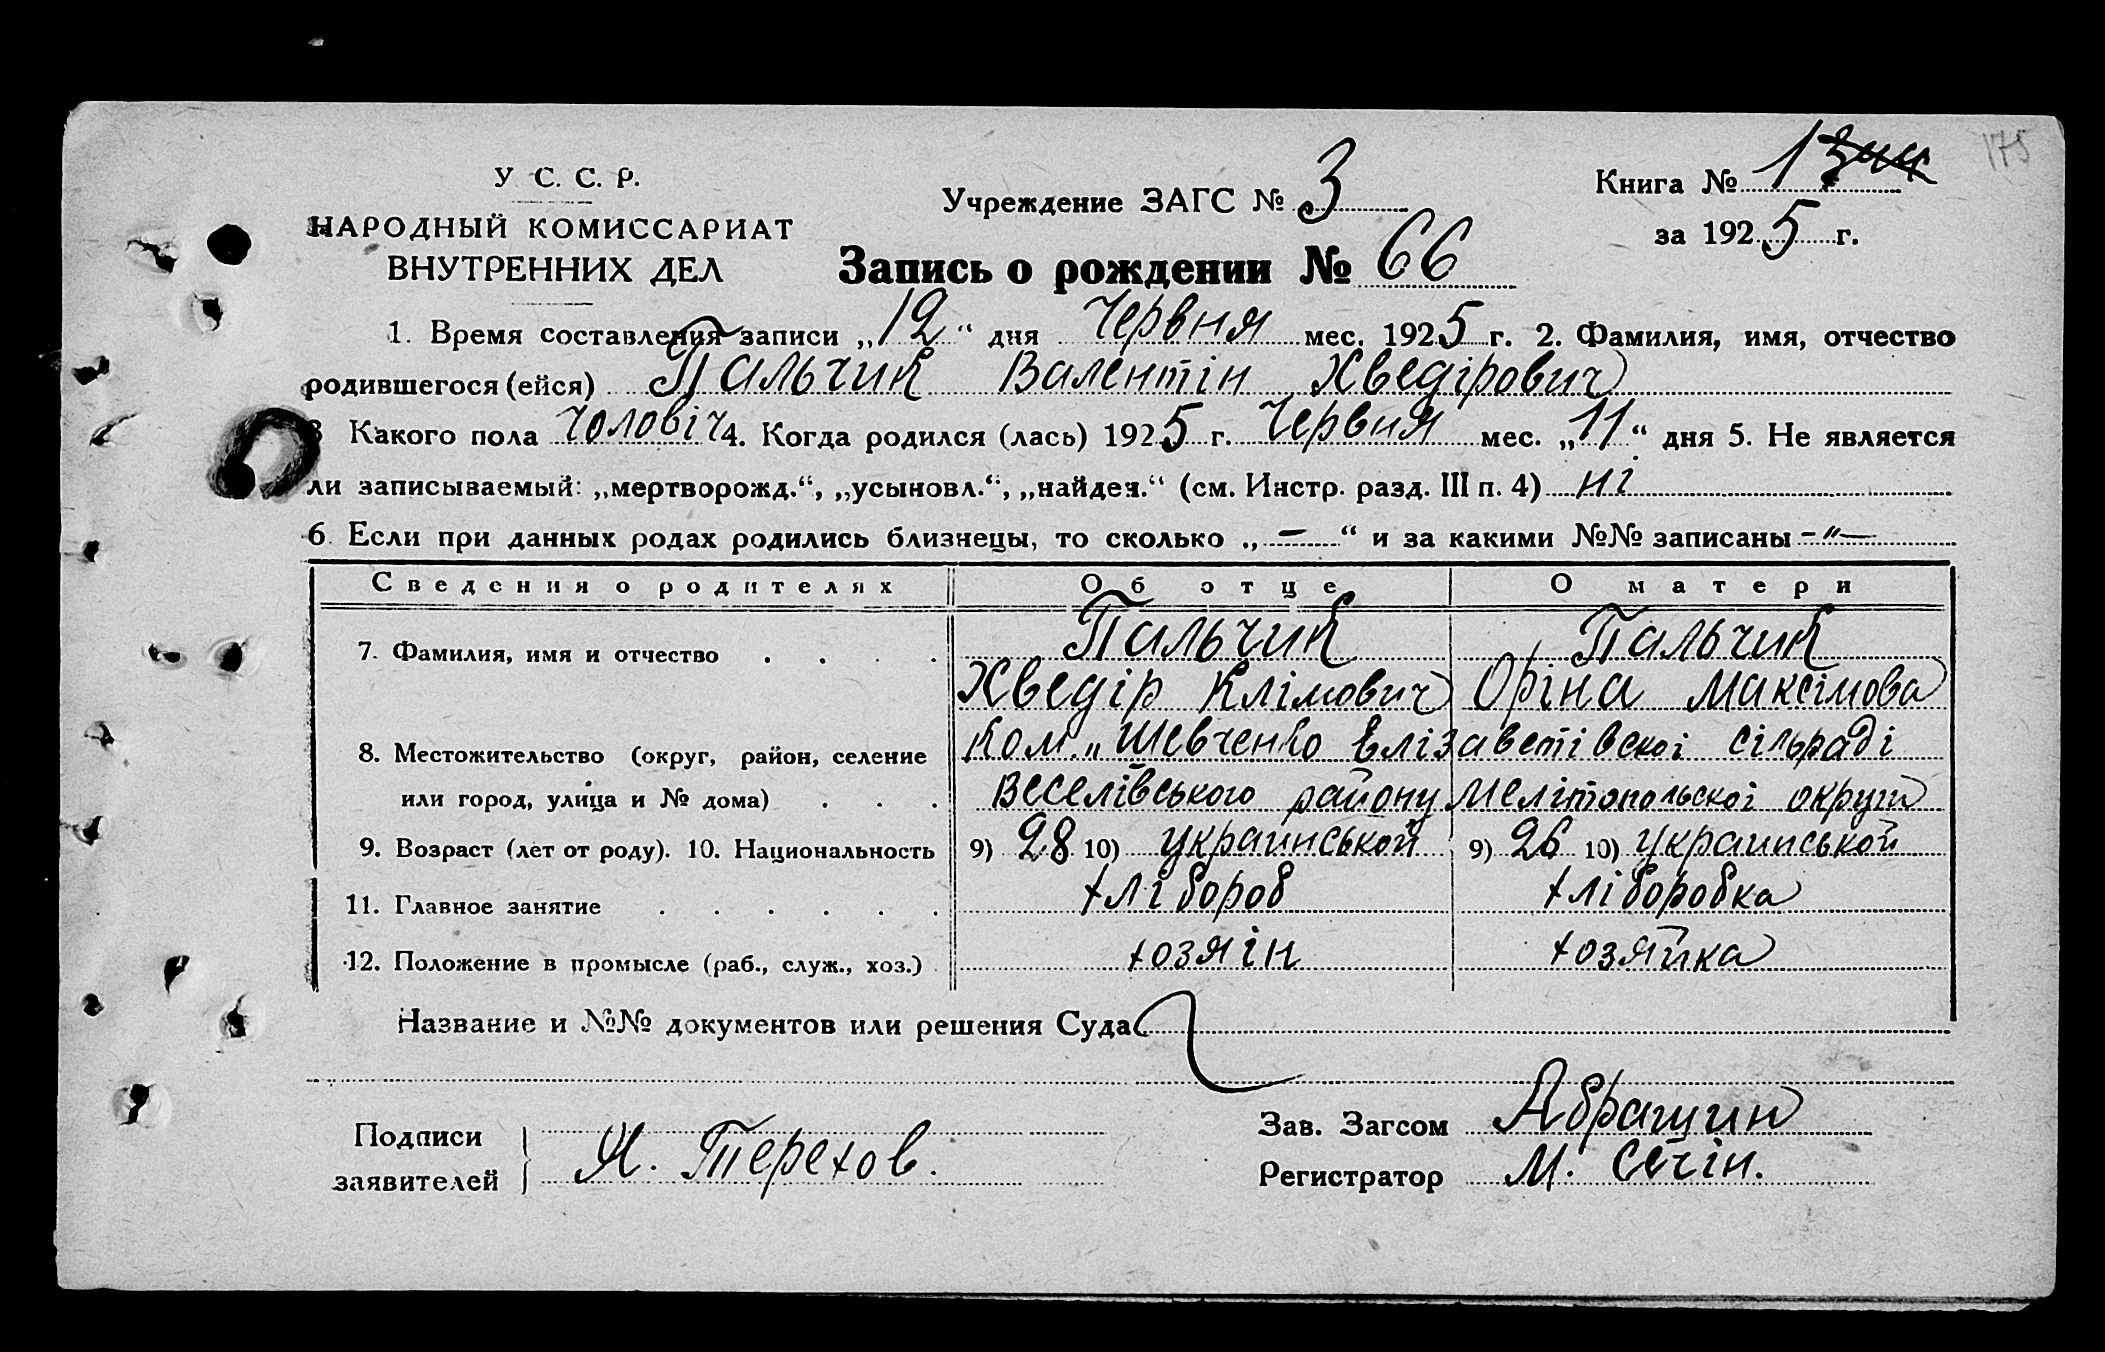 175
У. С. С. Р.
НАРОДНЫЙ КОМИССАРИАТ
ВНУТРЕННИХ ДЕЛ
Учреждение ЗАГС № 3
Книга № 1
за 1925 г.
Запись о рождении № 66
1. Время составления записи „12“ дня Червня мес. 1925 г. 2. Фамилия, имя, отчество
родившегося (ейся) Пальчик Валентін Хведірович
3 Какого пола чоловіч 4. Когда родился (лась) 1925 г. Червня мес. „11“ дня 5. Не является
ли записываемый: „мертворожд.“, „усыновл.“, „найден.“ (см. Инстр. разд. III п. 4) ні
6. Если при данных родах родились близнецы, то сколько „ — “ и за какими №№ записаны -"-
Сведения о родителях Об отце О матери
7. Фамилия, имя и отчество . . . . Пальчик Пальчик
Хведір Клімович Оріна Максімова
8. Местожительство (округ, район, селение Ком. „Шевченко Єлізаветівскоі сільраді
или город, улица и № дома) . . . Веселівського району Мелітопольскоі округи
9. Возраст (лет от роду). 10. Национальность 9) 28 10) украинськой 9) 26 10) украинськой
11. Главное занятие . . . . . . хлібороб хліборобка
12. Положение в промысле (раб., служ., хоз.) хозяін хозяйка
Название и №№ документов или решения Суда
Подписи
заявителей Я. Терехов.
Зав. Загсом Абрашин
Регистратор М. Сечін.